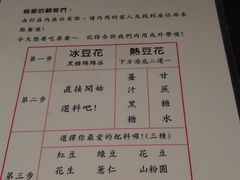 親愛的顧客們,
由於店內座位有限,請內用的客人先找到座位再來
點餐喔!
今天想要吃甚麼~記得告訴我們內用或外帶喔!
第一步
冰豆花
黑糖綿綿冰
熱豆花
下方湯底二選一
第二步
直接開始
選料吧!
薑汁黑糖
甘蔗糖水
第三步
選擇你最愛的配料喔!(三種)
紅豆 綠豆 花豆
花生 薏仁 山粉圓